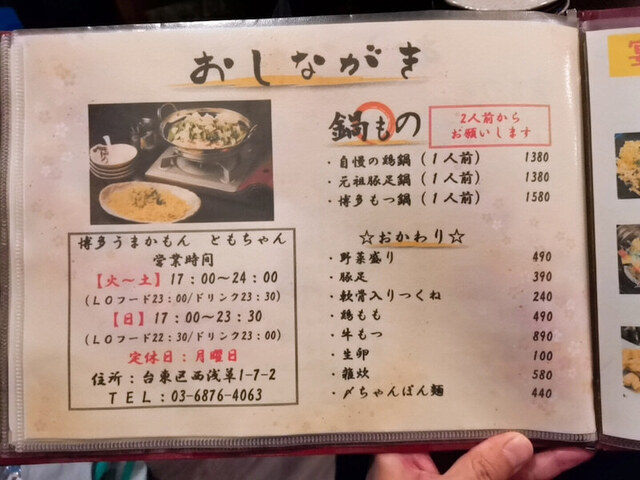 おしながき
鍋もの
2人前から
お願いします
・自慢の鶏鍋（1人前） 1380
・元祖豚足鍋（1人前） 1380
・博多もつ鍋（1人前） 1580
☆おかわり☆
・野菜盛り 490
・豚足 390
・軟骨入りつくね 240
・鶏もも 490
・牛もつ 890
・生卵 100
・雑炊 580
・〆ちゃんぽん麺 440
博多うまかもん ともちゃん
営業時間
【火～土】17：00～24：00
（LOフード23：00/ドリンク23：30）
【日】17：00～23：30
（LOフード22：30/ドリンク23：00）
定休日：月曜日
住所：台東区西浅草1-7-2
TEL：03-6876-4063